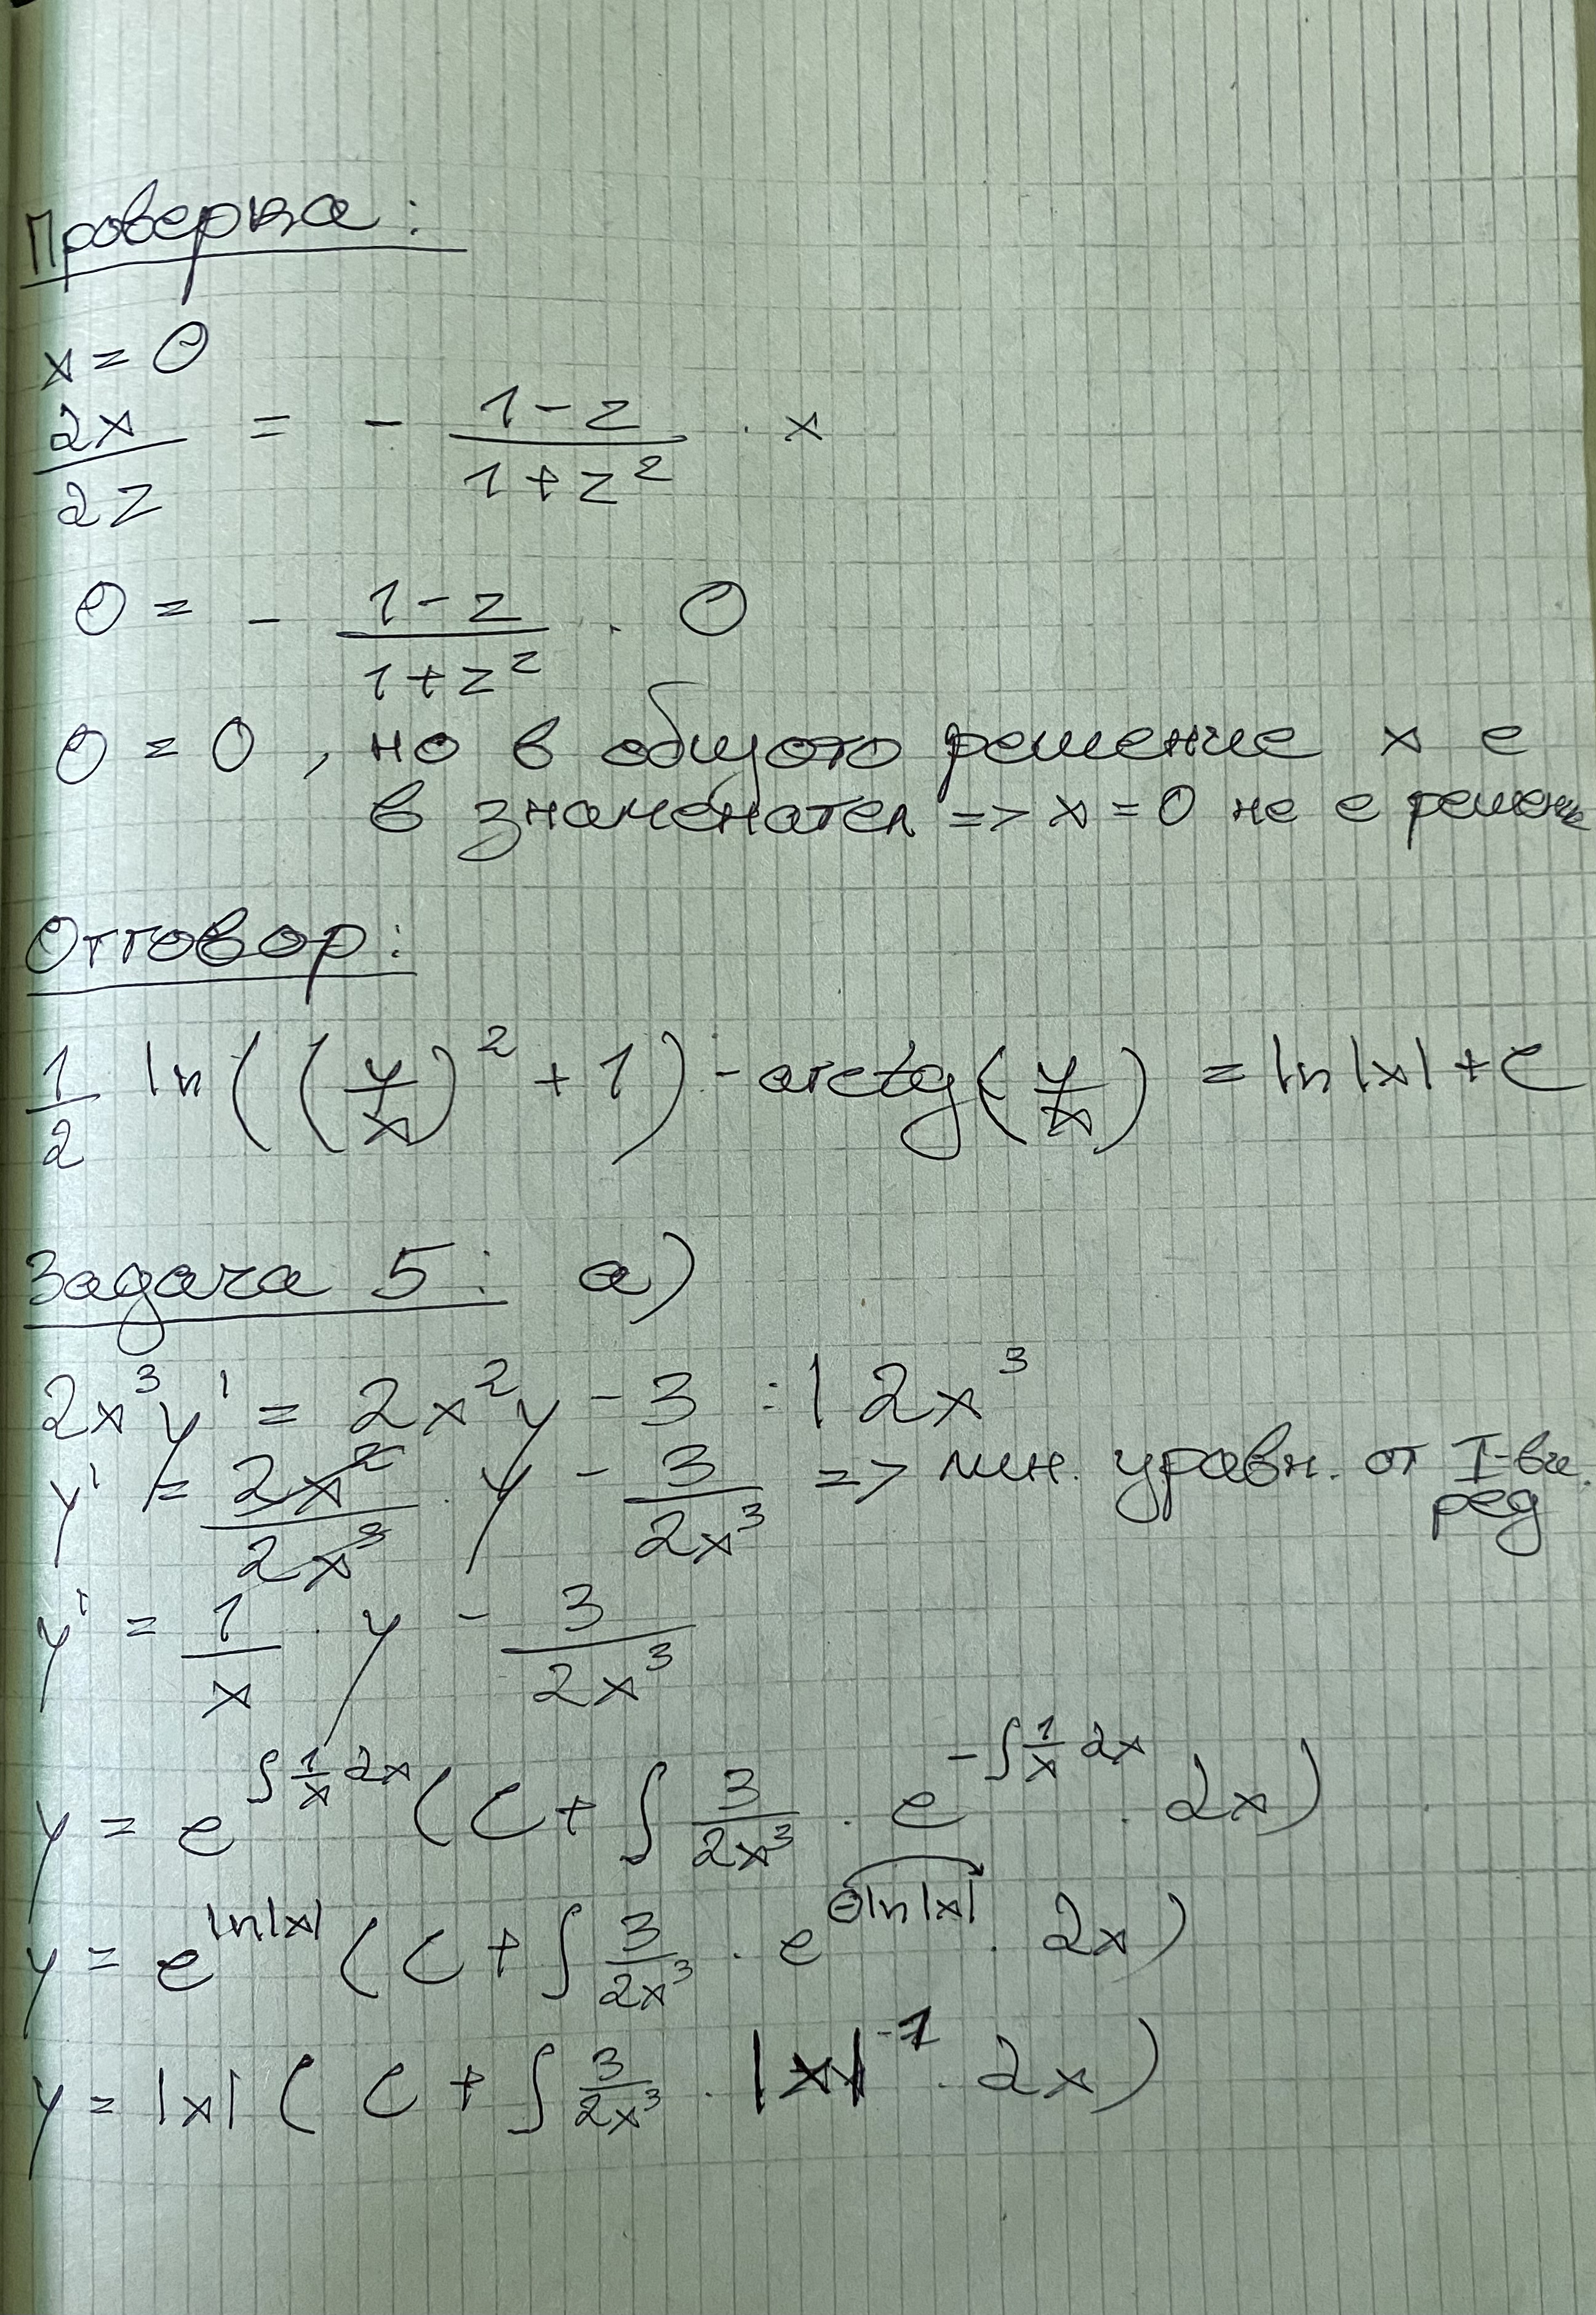 Проверка:
x = 0
2x/2z = - (1-z)/(1+z²) . x
0 = - (1-z)/(1+z²) . 0
0 = 0, но в общото решение x е
в знаменател => x = 0 не е решение
Отговор:
1/2 ln((y/x)² + 1) - arctg(y/x) = ln|x| + c
Задача 5: а)
2x³y' = 2x²y - 3 :| 2x³
y' = 2x²/2x³ . y - 3/2x³ => лин. уравн. от I-ви
ред
y' = 1/x . y - 3/2x³
y = e^(∫ 1/x 2x) (c + ∫ 3/2x³ . e^(-∫ 1/x 2x) . 2x)
y = e^(ln|x|) (c + ∫ 3/2x³ . e^(-ln|x|) . 2x)
y = |x| (c + ∫ 3/2x³ . |x|⁻¹ . 2x)